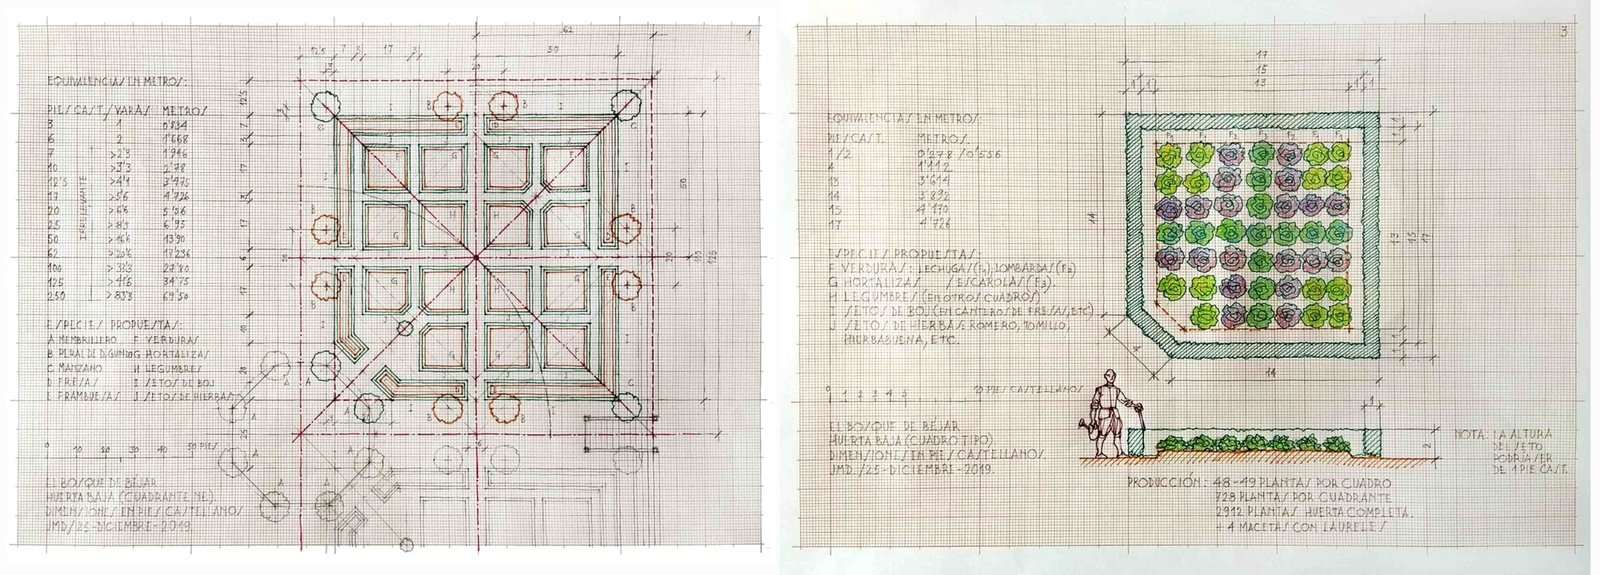 1
62
12'5 7 5 17 3
50
EQUIVALENCIAS EN METROS:
PIES CAST./VARAS METROS
3 1 0'834
6 2 1'668
7 >2'3 1'946
10 >3'3 2'78
12'5 >4'1 3'475
17 >5'6 4'726
20 >6'6 5'56
25 >8'3 6'95
50 >16'6 13'90
62 >20'6 17'236
100 >33'3 27'80
125 >41'6 34'75
250 >83'3 69'50
IRRELEVANTE
ESPECIES PROPUESTAS:
A MEMBRILLERO F VERDURAS
B PERAL DE D.GUINDO G HORTALIZAS
C MANZANO H LEGUMBRES
D FRESAS I SETOS DE BOJ
E FRAMBUESAS J SETOS DE HIERBAS
0 10 20 30 50 PIES
EL BOSQUE DE BÉJAR
HUERTA BAJA (CUADRANTE NE).
DIMENSIONES EN PIES CASTELLANOS
JMD/25-DICIEMBRE-2019.
3
17
15
13
EQUIVALENCIAS EN METROS:
PIES CAST. METROS
1/2 0'278 /0'556
4 1'112
13 3'614
14 3'892
15 4'170
17 4'726
ESPECIES PROPUESTAS:
F VERDURAS: LECHUGAS (F1), LOMBARDAS (F2)
G HORTALIZAS /ESCAROLAS (F3).
H LEGUMBRES (EN OTROS CUADROS)
I SETOS DE BOJ (EN CANTEROS DE FRESAS, ETC)
J SETOS DE HIERBAS: ROMERO, TOMILLO,
HIERBABUENA, ETC.
14
13 15 17
4
14
0 1 2 3 4 5 10 PIES CASTELLANOS
EL BOSQUE DE BÉJAR
HUERTA BAJA (CUADRO TIPO).
DIMENSIONES EN PIES CASTELLANOS
JMD/25-DICIEMBRE-2019.
1
2
NOTA: LA ALTURA
DEL SETO
PODRÍA SER
DE 1 PIE CAST.
PRODUCCIÓN: 48-49 PLANTAS POR CUADRO
728 PLANTAS POR CUADRANTE
2912 PLANTAS HUERTA COMPLETA.
+4 MACETAS CON LAURELES